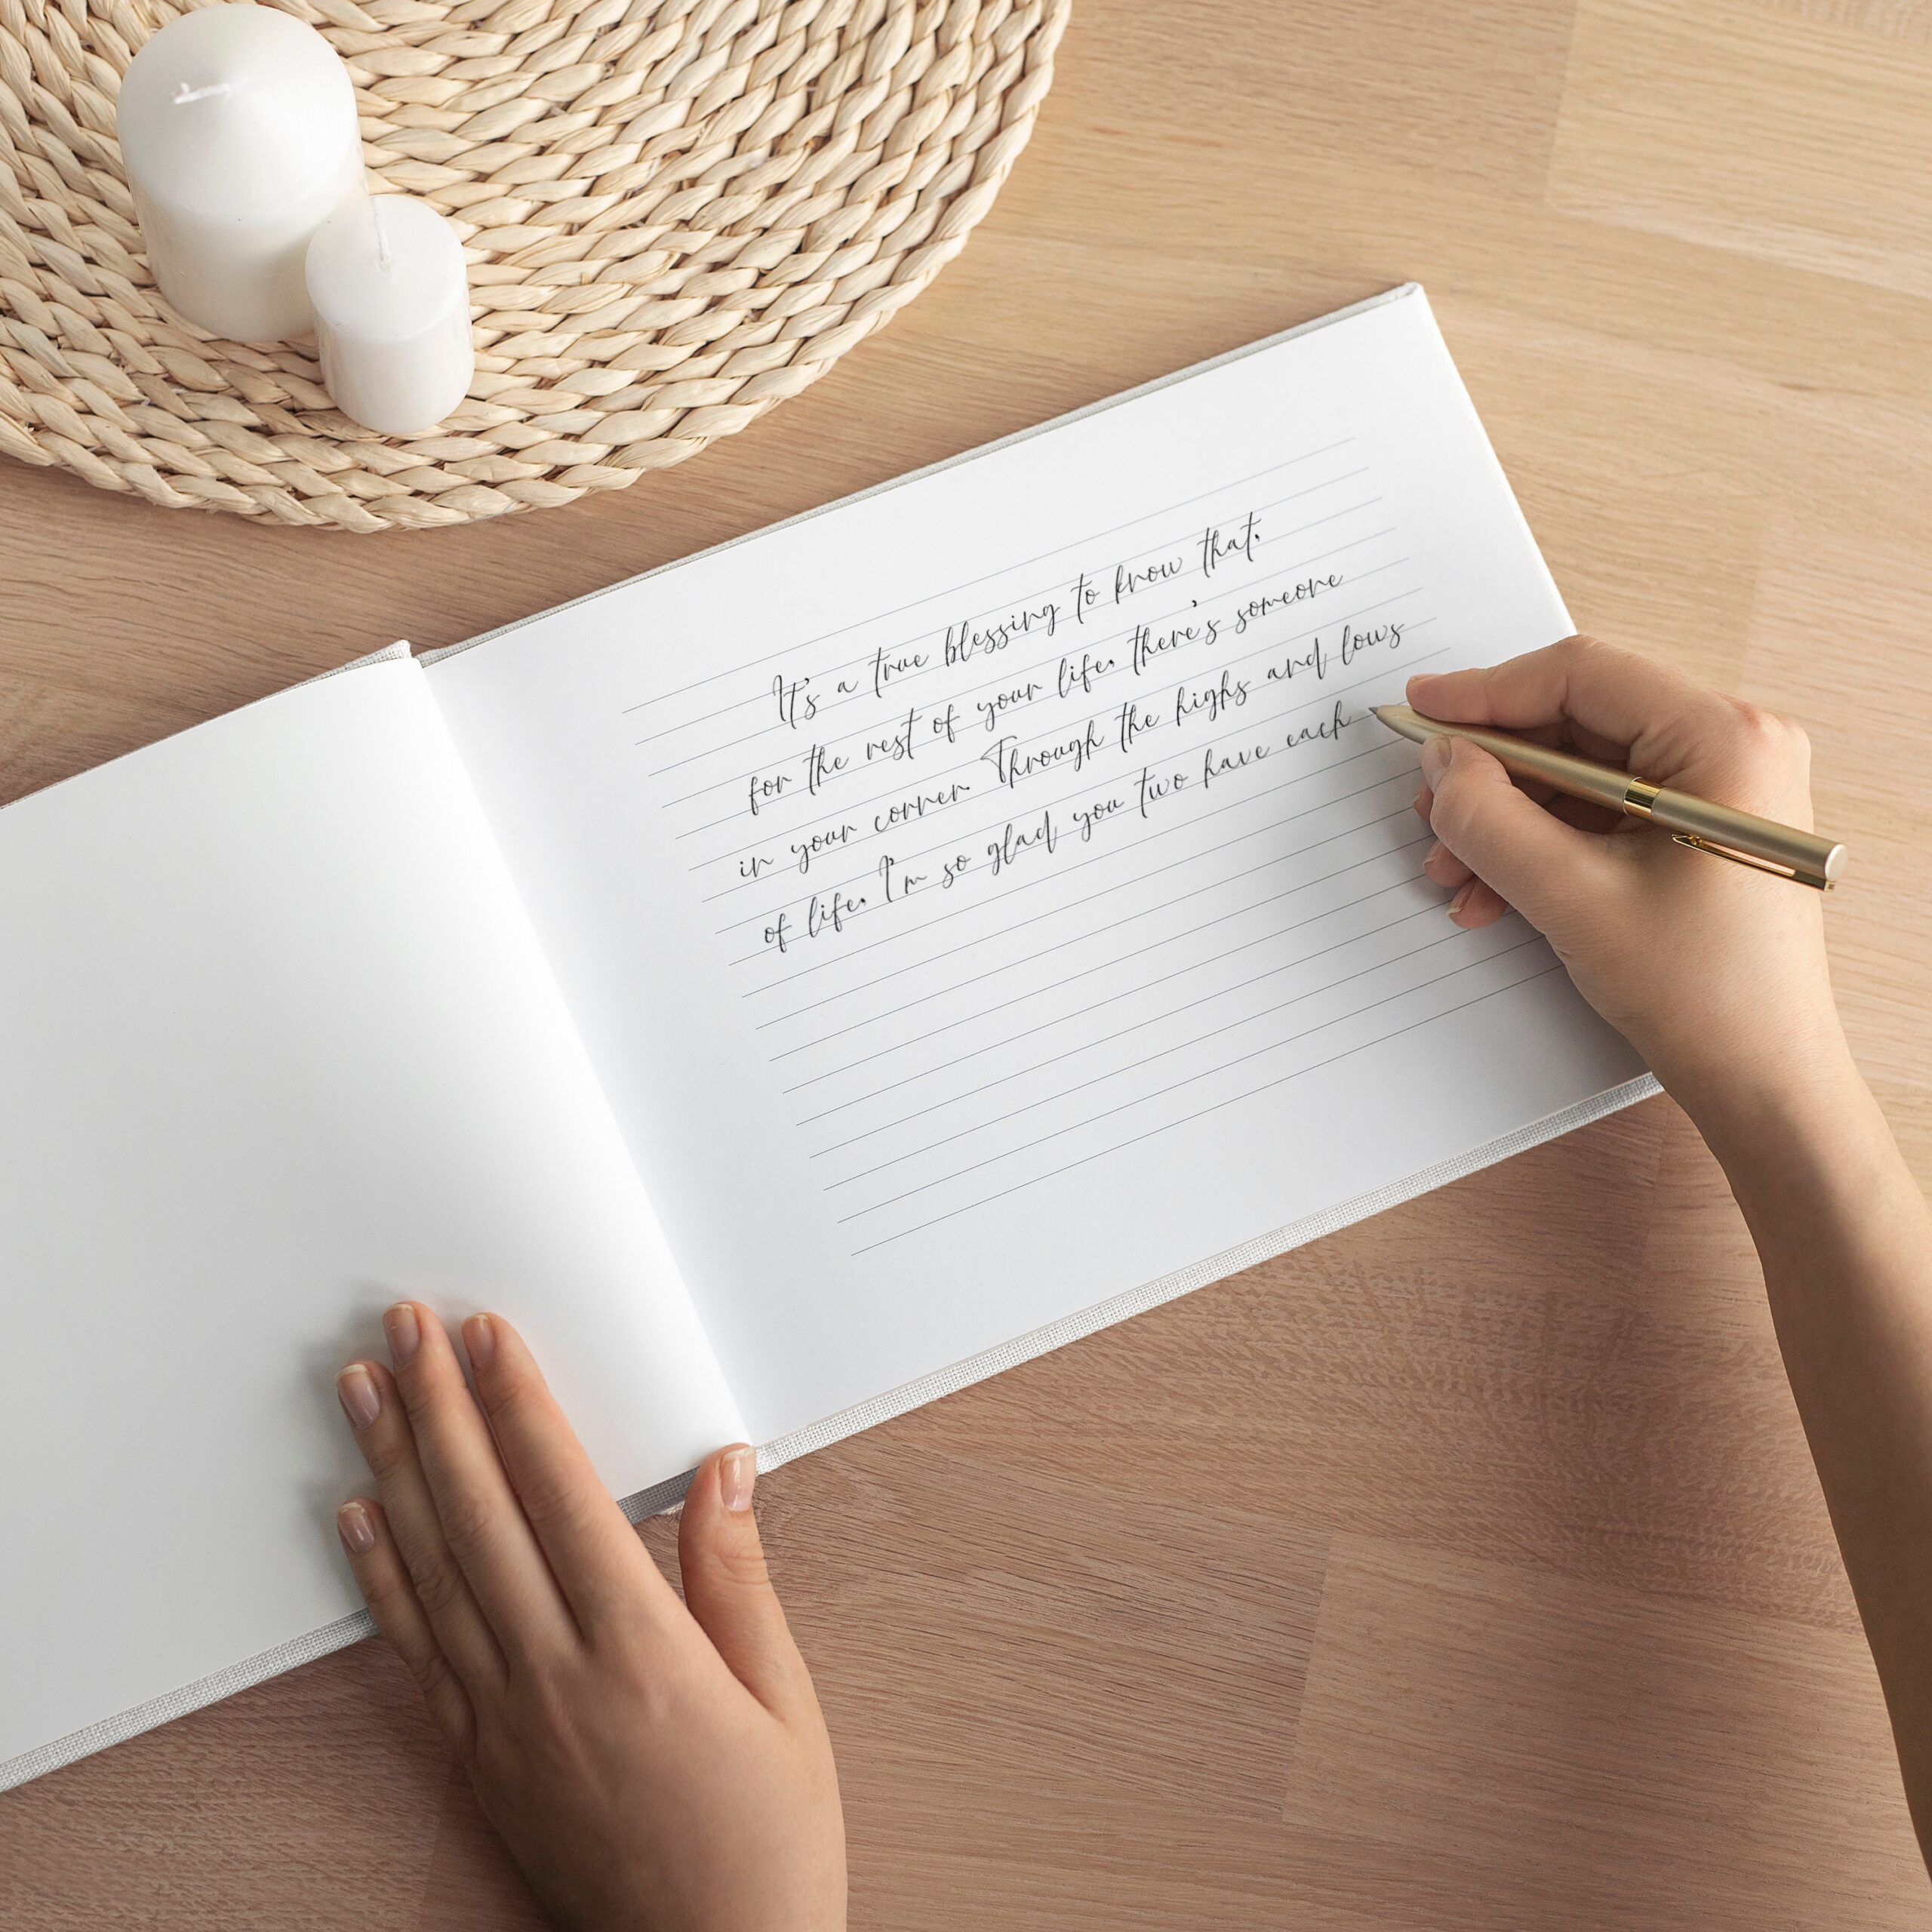 It's a true blessing to know that,
for the rest of your life, there's someone
in your corner. Through the highs and lows
of life, I'm so glad you two have each